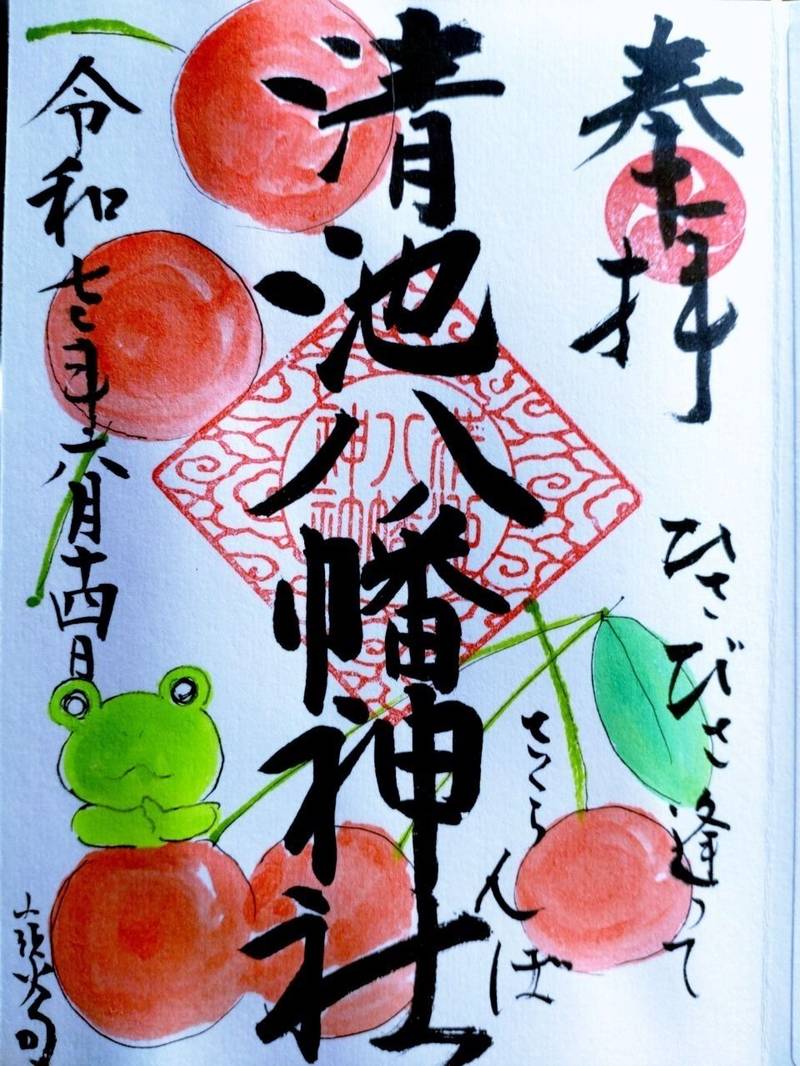 奉拝
ひさびさ逢って
さくらんぼ
清池八幡神社
令和七年六月十四日